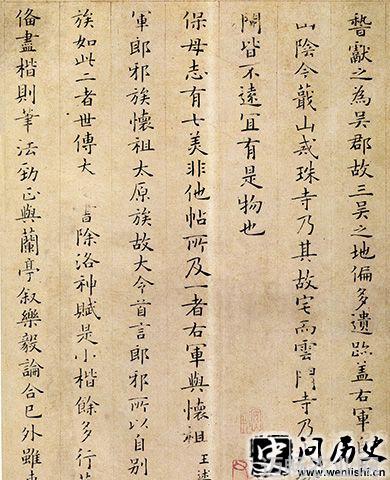 獻之為吳郡故三吳之地偏多遺跡蓋右軍
山陰今蕺山戒珠寺乃其故宅而雲門寺乃
間皆不遠宜有是物也
保母志有七美非他帖所及一者右軍與懷祖王述
軍耶邪族懷祖太原族故大令首言耶邪所以自別
族如此二者世傳大 除洛神賦是小楷餘多行
備盡楷則筆法勁正與蘭亭敘樂毅論合已外雖
问历史
www.wenlishi.cn